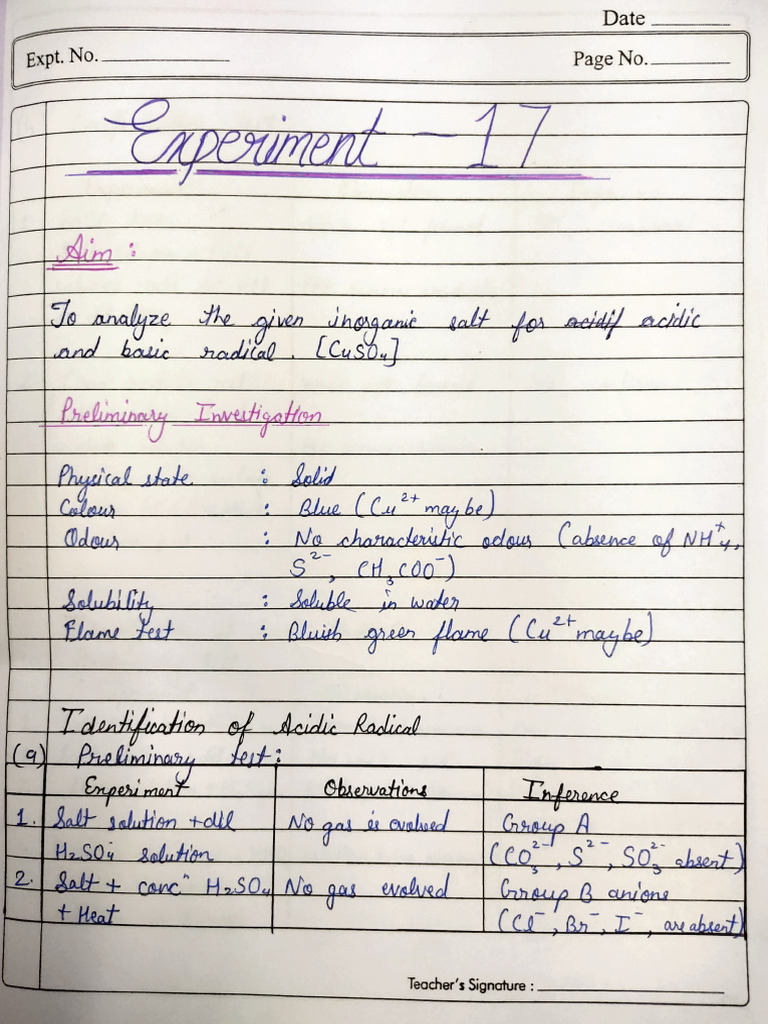 Date
Expt. No.
Page No.
Experiment - 17
Aim :
To analyze the given inorganic salt for acidif acidic
and basic radical. [CuSO₄]
Preliminary Investigation
Physical state : Solid
Colour : Blue (Cu²⁺ maybe)
Odour : No characteristic odour (absence of NH₄⁺,
S²⁻, CH₃COO⁻)
Solubility : Soluble in water
Flame test : Bluish green flame (Cu²⁺ maybe)
Identification of Acidic Radical
(a) Preliminary test:
Experiment Observations Inference
1. Salt solution + dil No gas is evolved Group A
H₂SO₄ solution (CO₃²⁻, S²⁻, SO₃²⁻ absent)
2. Salt + concⁿ H₂SO₄ No gas evolved Group B anions
+ Heat (Cl⁻, Br⁻, I⁻, are absent)
Teacher's Signature :